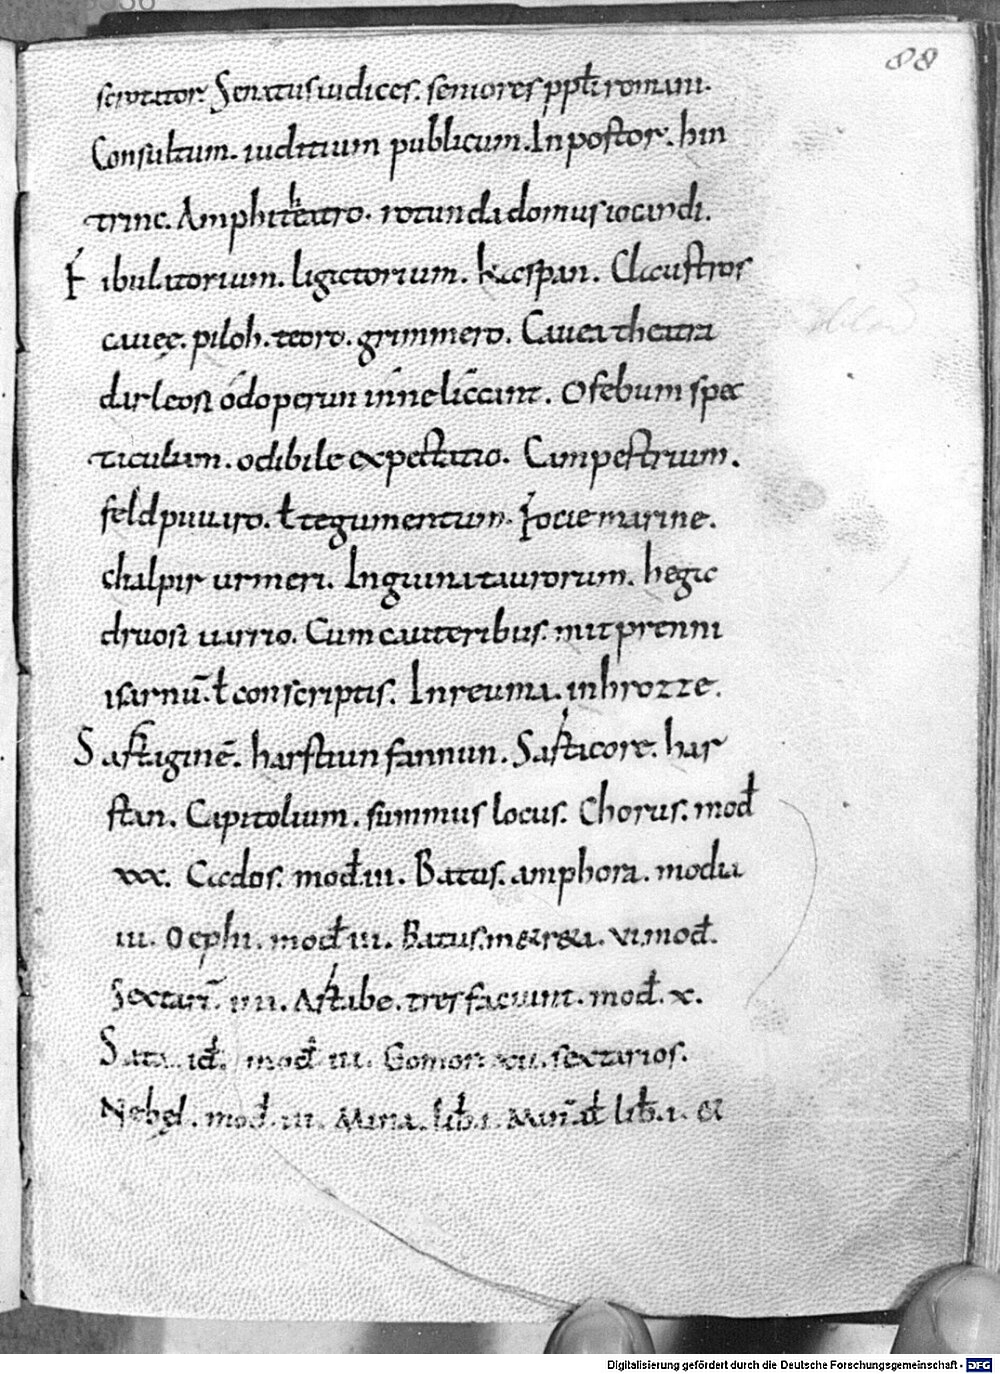 88
scrutator. Senatus iudices. seniores ppłi romani.
Consultum. iuditium publicum. Inpostor. hin
trinc. Amphiteatro. rotunda domus iocandi.
Fibulatorium. ligatorium. kaspan. Claustros
cauee. piloh. teoro. grimmero. Cauea theatra
dar leon odo perun inne liccant. Ofebum spec
taculum. odibile expectatio. Campestrium.
feld puuaro. ł tegumentum. Focae marine.
chalpir urmeri. Inguina taurorum. hegac
druosi uarrio. Cum cauteribus. mit prenni
isarnū. ł conscriptis. In reuma. in hrozze.
Sartaginē. harstun fannun. Sarticore. har
stan. Capitolium. summus locus. Chorus. mođ
xxx. Cados. mođ. iii. Batus. amphora. modia
iii. Oephi. mođ iii. Batus. m&r&a. vi. mođ.
Sextarī. iiii. Artabe. tres faciunt. mođ. x.
Sata. iđ. mođ iii. Gomor. xii. sextarios.
Nebel. mođ. iii. Mina. lib. i. Min̄. iđ lib. i. &
Digitalisierung gefördert durch die Deutsche Forschungsgemeinschaft - DFG